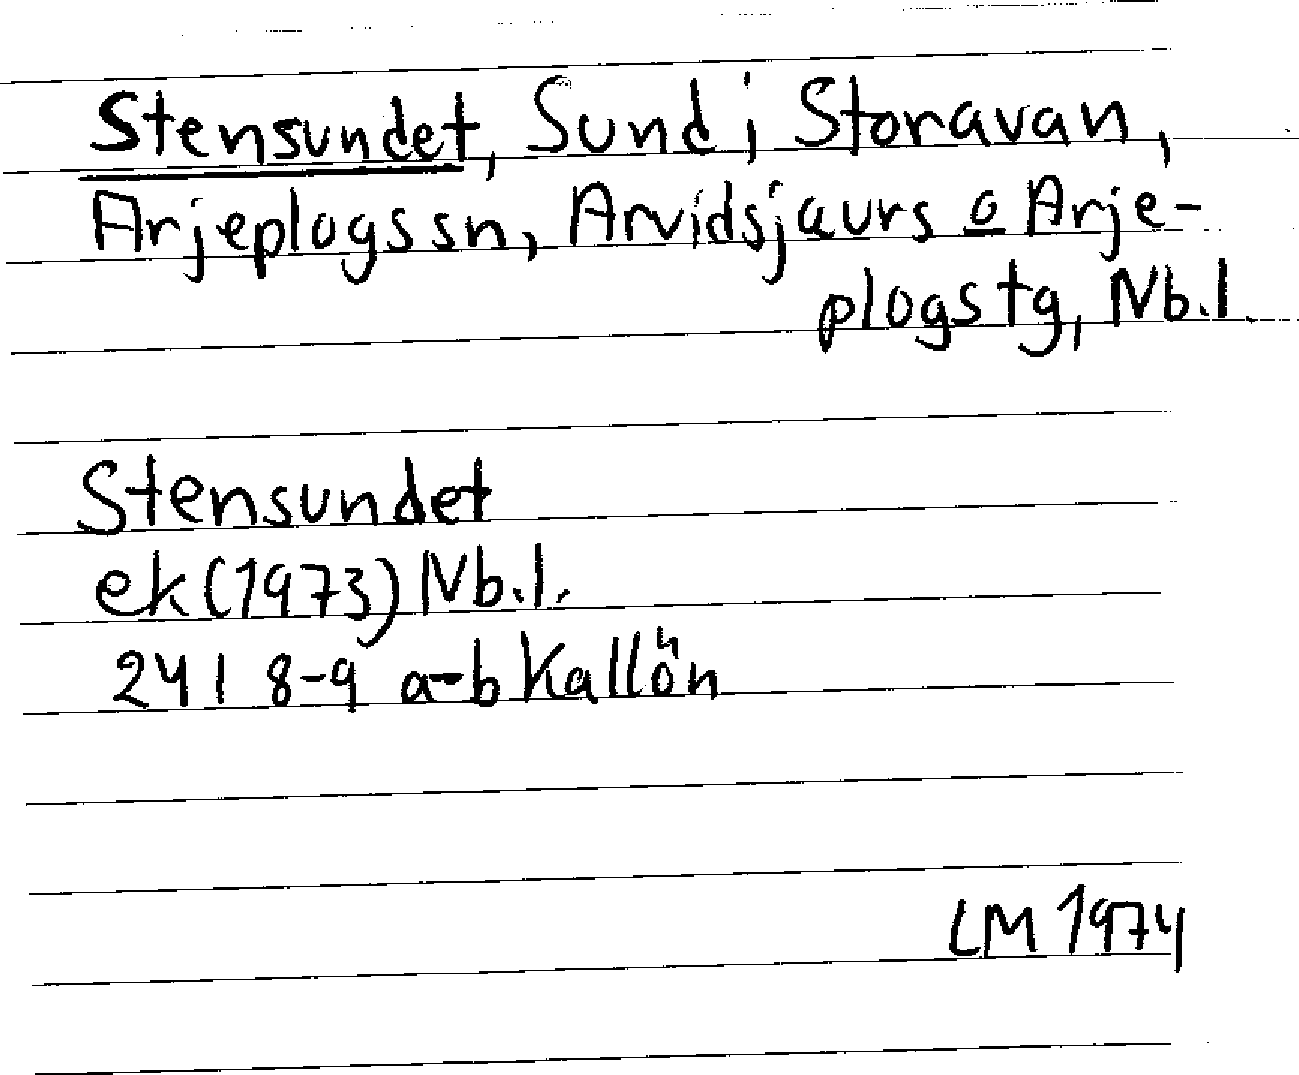 Stensundet, Sund i Storavan,
Arjeplogssn, Arvidsjaurs o Arje-
plogstg, Nb.l.
Stensundet
ek (1973) Nb.l.
24 I 8-9 a-b Kallön
LM 1974